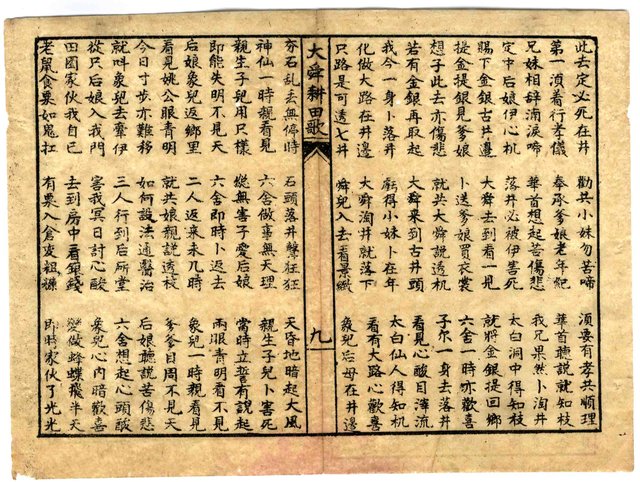 此去定必死在井 勸共小妹勿苦啼 須要有孝共順理
第一湏着行孝儀 奉承爹娘老年紀 華首聽說就知枝
兄妹相辞滴淚啼 華首想起苦傷悲 我兄果然卜淘井
定中后娘伊心机 落井必被伊害死 太白洞中得知枝
賜下金銀古井邊 大舜去到看一見 就將金銀提回鄉
提金提銀見爹娘 卜送爹娘買衣裳 六舍一時亦歡喜
想子此去亦傷悲 就共大舜說透机 子尔一身去落井
若有金銀再取起 大舜來到古井頭 看見心酸目滓流
我今一身卜落井 虧得小妹卜在年 太白仙人得知机
化做大路在井邊 大舜淘井就落下 看有大路心歡喜
只路是可透七井 舜兒入去看景緻 象兒后母在井邊
大舜耕田歌 九
夯石乱丢無停時 石頭落井聲狂狂 天昏地暗起大風
神仙一時親看見 六舍做事無天理 親生子兒卜害死
親生子兒用只樣 從無害子愛后娘 當時立誓有說起
即能失明不見天 六舍即時卜返去 兩眼青明看不見
后娘象兒返鄉里 二人返來未几時 象兒一時親看見
看見姚公眼青明 就共娘親說透枝 爹爹目周不見天
今日寸步亦難移 如何設法通醫治 后娘聽說苦傷悲
就叫象兒去牽伊 三人行到后所堂 六舍想起心頭酸
從只后娘入我門 害我冥日討心酸 象兒心內暗歡喜
田園家伙我自己 去到房中看銀錢 變做蜂蝶飛半天
老鼠食粟如鬼扛 有粟入倉変粗糠 即時家伙了光光